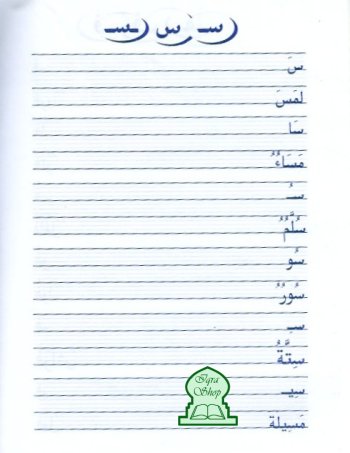 سـ س ـسـ
سَ
لَمَسَ
سَا
مَسَاءٌ
سُـ
سُلَّمٌ
سُو
سُورٌ
سِـ
سِتَّةٌ
سِيـ
مَسِيلة
Iqra
Shop